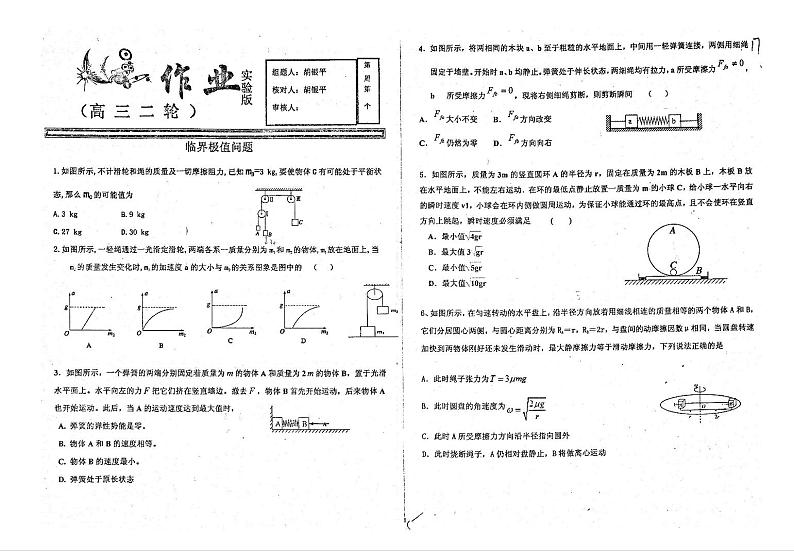 作业
实验版
（高三二轮）
组题人：胡银平
核对人：胡银平
审核人：
第
周
第
个
临界极值问题
1.如图所示,不计滑轮和绳的质量及一切摩擦阻力,已知m_B=3 kg,要使物体C有可能处于平衡状
态,那么m_C的可能值为
A.3 kg B.9 kg
C.27 kg D.30 kg
2.如图所示,一轻绳通过一光滑定滑轮,两端各系一质量分别为m₁和m₂的物体,m₁放在地面上,当
m₂的质量发生变化时,m₁的加速度a的大小与m₂的关系图象是图中的 （ ）
A B C D
3．如图所示，一个弹簧的两端分别固定着质量为 m 的物体 A 和质量为 2m 的物体 B，置于光滑
水平面上。水平向左的力 F 把它们挤在竖直墙边。撤去 F ，物体 B 首先开始运动，后来物体 A
也开始运动。此后，当 A 的运动速度达到最大值时，
A. 弹簧的弹性势能是零。
B. 物体 A 和 B 的速度相等。
C. 物体 B 的速度最小。
D. 弹簧处于原长状态
4．如图所示，将两相同的木块 a、b 至于粗糙的水平地面上，中间用一轻弹簧连接，两侧用细绳
固定于墙壁。开始时 a、b 均静止。弹簧处于伸长状态，两细绳均有拉力，a 所受摩擦力 F_fa ≠ 0，
b 所受摩擦力 F_fb = 0，现将右侧细绳剪断，则剪断瞬间 （ ）
A． F_fa 大小不变 B． F_fa 方向改变
C． F_fb 仍然为零 D． F_fb 方向向右
5．如图所示，质量为 3m 的竖直圆环 A 的半径为 r，固定在质量为 2m 的木板 B 上，木板 B 放
在水平地面上，不能左右运动．在环的最低点静止放置一质量为 m 的小球 C，给小球一水平向右
的瞬时速度 v1，小球会在环内侧做圆周运动，为保证小球能通过环的最高点，且不会使环在竖直
方向上跳起，瞬时速度必须满足 （ ）
A．最小值√4gr
B．最大值 3√gr
C．最小值√5gr
D．最大值√10gr
6、如图所示，在匀速转动的水平盘上，沿半径方向放着用细线相连的质量相等的两个物体 A 和 B，
它们分居圆心两侧，与圆心距离分别为 R_A=r，R_B=2r，与盘间的动摩擦因数 μ 相同，当圆盘转速
加快到两物体刚好还未发生滑动时，最大静摩擦力等于滑动摩擦力，下列说法正确的是
A．此时绳子张力为 T = 3μmg
B．此时圆盘的角速度为 ω = √(2μg/r)
C．此时 A 所受摩擦力方向沿半径指向圆外
D．此时烧断绳子，A 仍相对盘静止，B 将做离心运动